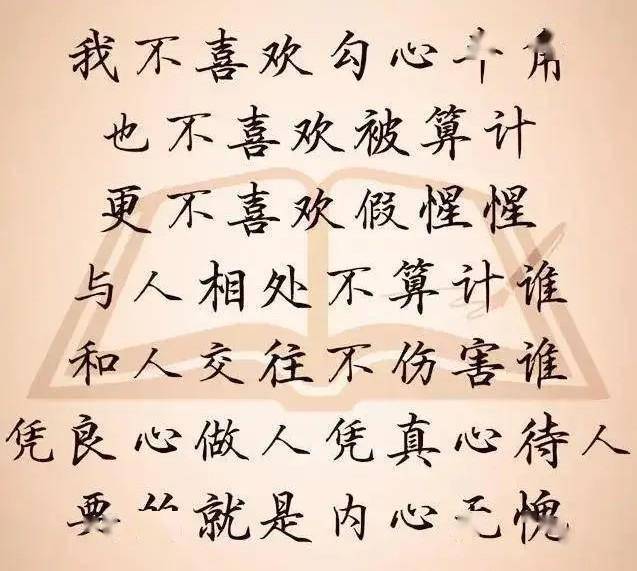 我不喜欢勾心斗角
也不喜欢被算计
更不喜欢假惺惺
与人相处不算计谁
和人交往不伤害谁
凭良心做人凭真心待人
要的就是内心无愧